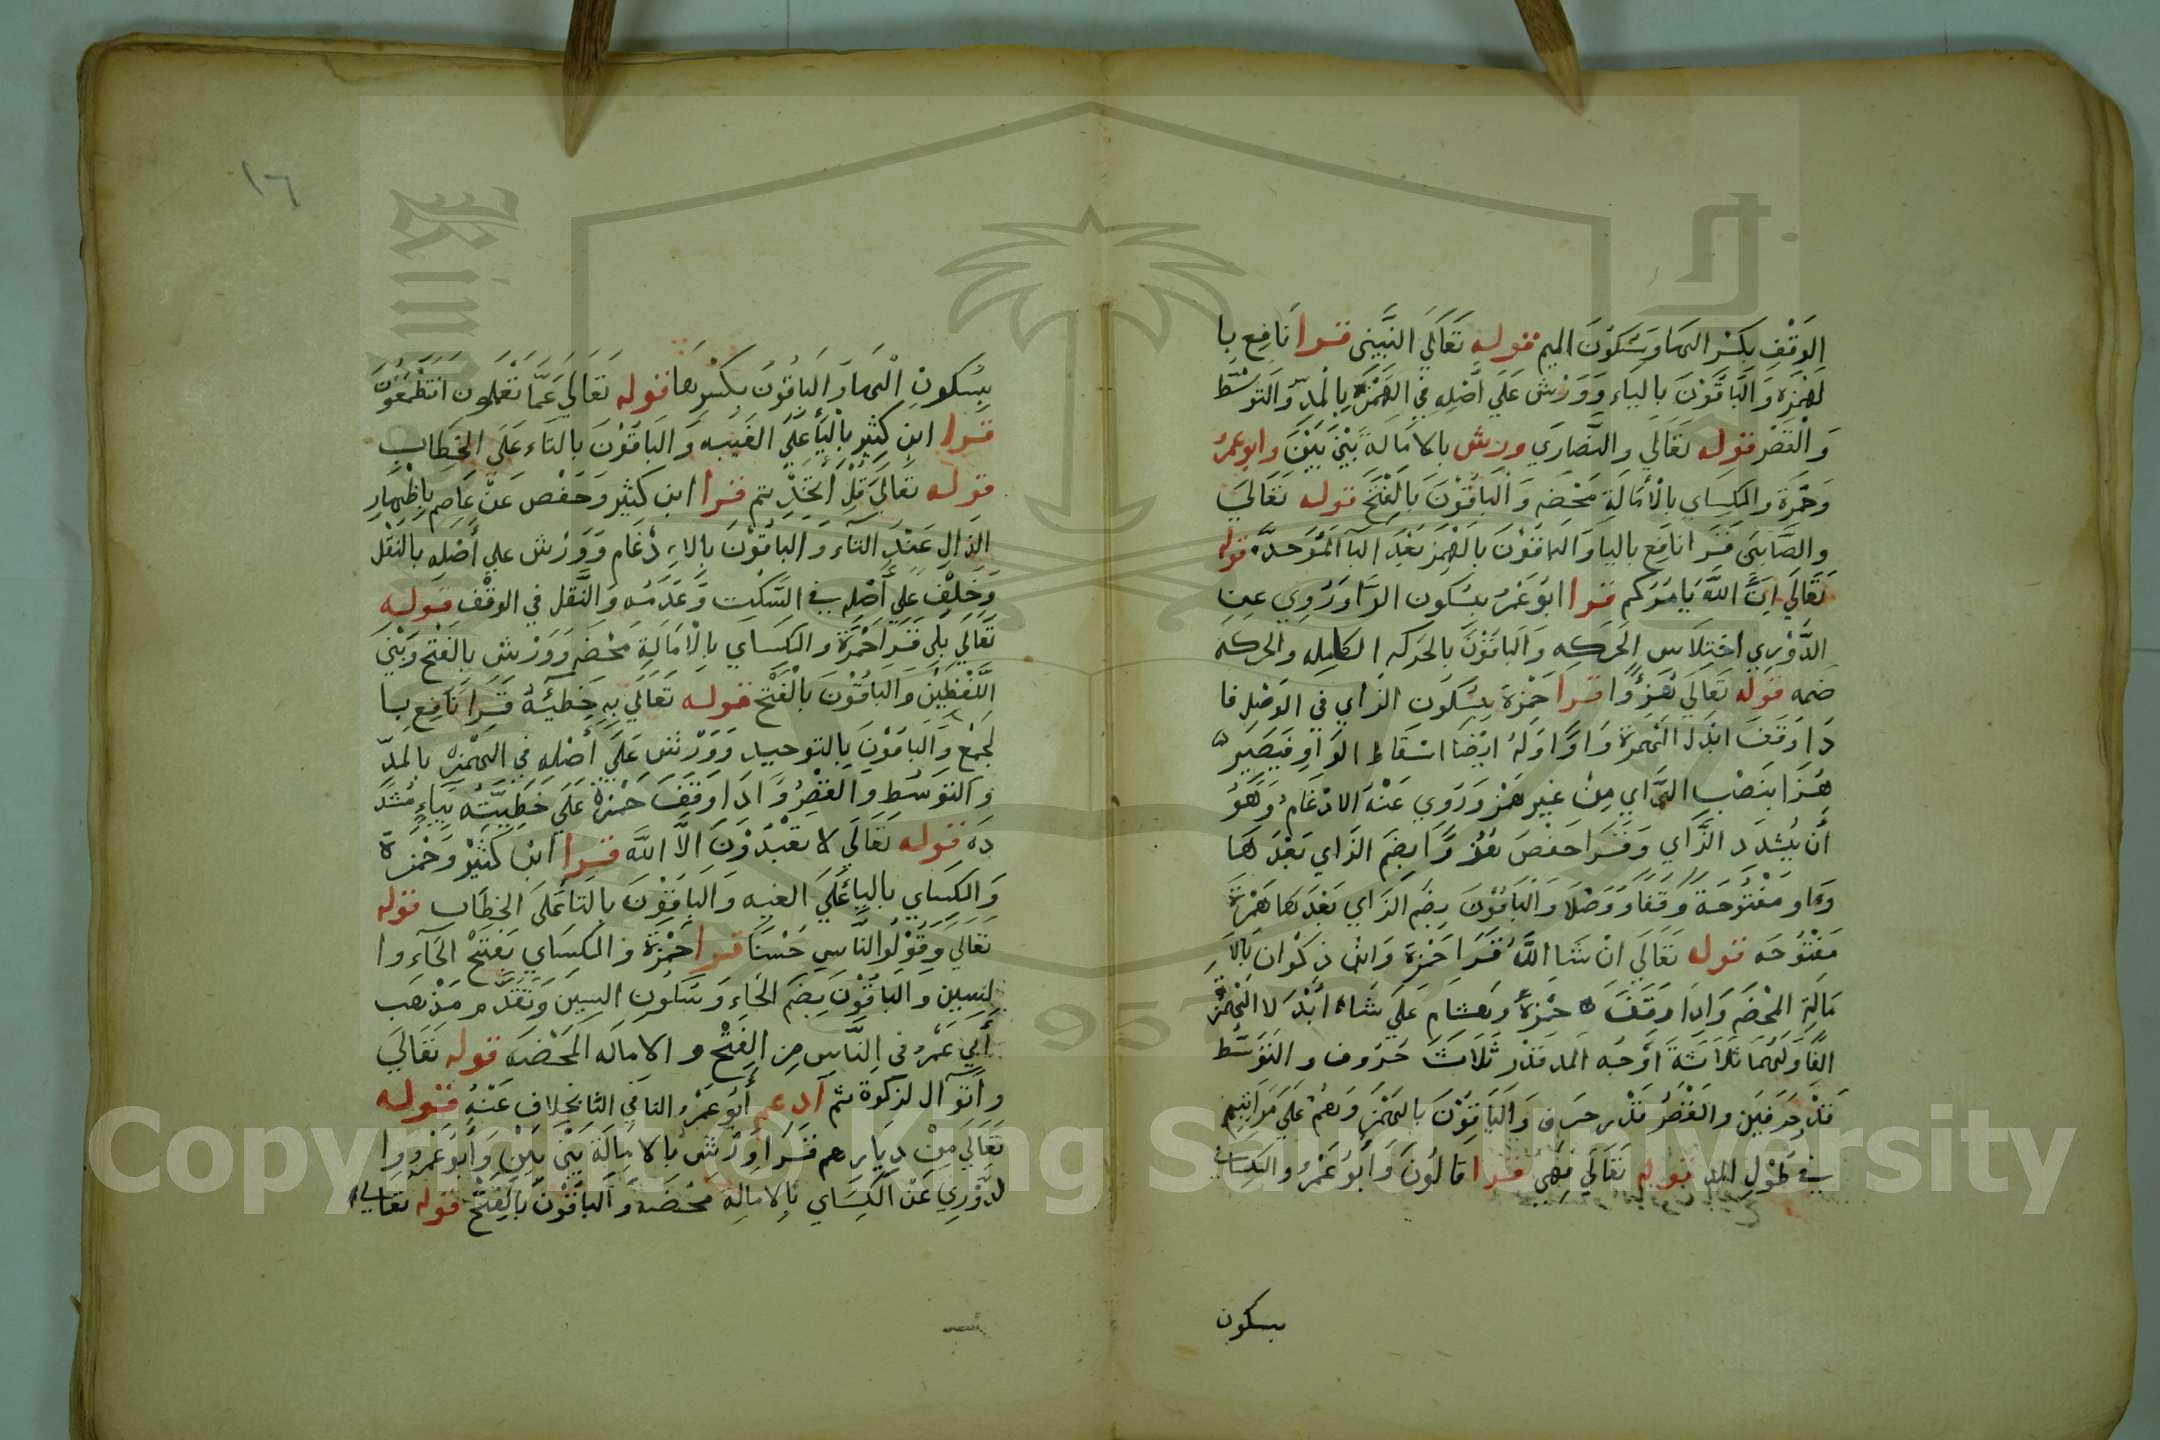 الوقف بكسر الها وسكون الميم قوله تعالي النبيى قرا نافع با
لهمزه والباقون بالياء وورش علي اصله في الهمزة بالمد والتوسط
والقصر قوله تعالي والنصاري ورش بالامالة بين بين وابو عمر
وحمزة والكساي بالامالة محضه والباقون بالفتح قوله تعالي
والصابى قرا نافع باليا والباقون بالهمز بعد البا الموحده قوله
تعالي ان الله يامركم قرا ابو عمر بسكون الرا وروي عن
الدوري اختلاس الحركه والباقون بالحركه الكامله والحركه
ضمه قوله تعالي هزوا قرا حمزة بسكون الزاي في الوصل فا
دا وقف ابدل الهمزة واوا وله ايضا اسقاط الواو فيصير
هزا بنصب الزاي من غير همز وروي عنه الادغام وهو
أن يشدد الزاي وقرا حفص هزوا بضم الزاي بعدها
واو مفتوحة وقفا ووصلا والباقون بضم الزاي بعدها همزة
مفتوحه قوله تعالي ان شا الله قرا حمزة وابن ذكوان بالا
مالة المحضه وادا وقف حمزة وهشام علي شاء أبدلا الهمزة
الفا ولهما ثلاثة اوجه المد قدر ثلاث حروف والتوسط
قدر حرفين والقصر قدر حرف والباقون بالهمز وهم علي مراتبهم
في طول المد قوله تعالي فهى قرا قالون وأبو عمر والكساي
بسكون
١٦
بسكون الها والباقون بكسرها قوله تعالي عما تعملون افتطمعون
قرا ابن كثير باليا علي الغيبه والباقون بالتاء علي الخطاب
قوله تعالي قل أتخذتم قرا ابن كثير وحفص عن عاصم باظهار
الذال عند التاء والباقون بالاِدغام وورش علي أصله بالنقل
وخلف علي أصله في السكت وعدمه والنقل في الوقف قوله
تعالي بلي قرا حمزة والكساي بالامالة محضه وورش بالفتح وبين
اللفظين والباقون بالفتح قوله تعالي به خطيئة قرا نافع با
لجمع والباقون بالتوحيد وورش علي أصله في الهمزه بالمد
والتوسط والقصر وادا وقف حمزة علي خطيته بياء مشد
ده قوله تعالي لا تعبدون الا الله قرا ابن كثير وحمزة
والكساي باليا علي الغيبه والباقون بالتا علي الخطاب قوله
تعالي وقولوا الناس حسنا قرا حمزة والكساي بفتح الحاء وا
لسين والباقون بضم الحاء وسكون السين وتقدم مذهب
أبي عمر في الناس من الفتح والاماله المحضه قوله تعالي
واتو ال لزكوة ثم ادغم أبو عمر التا في الثا بخلاف عنه قوله
تعالي من ديارهم قرا ورش بالامالة بين بين وأبو عمر وا
لدوري عن الكساي بالاماله محضه والباقون بالفتح قوله تعالي
Copyright © King Saud University